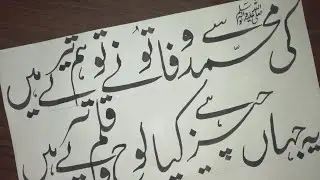 کی محمد ﷺ سے وفا تو نے تو ہم تیرے ہیں
یہ جہاں چیز ہے کیا لوح و قلم تیرے ہیں